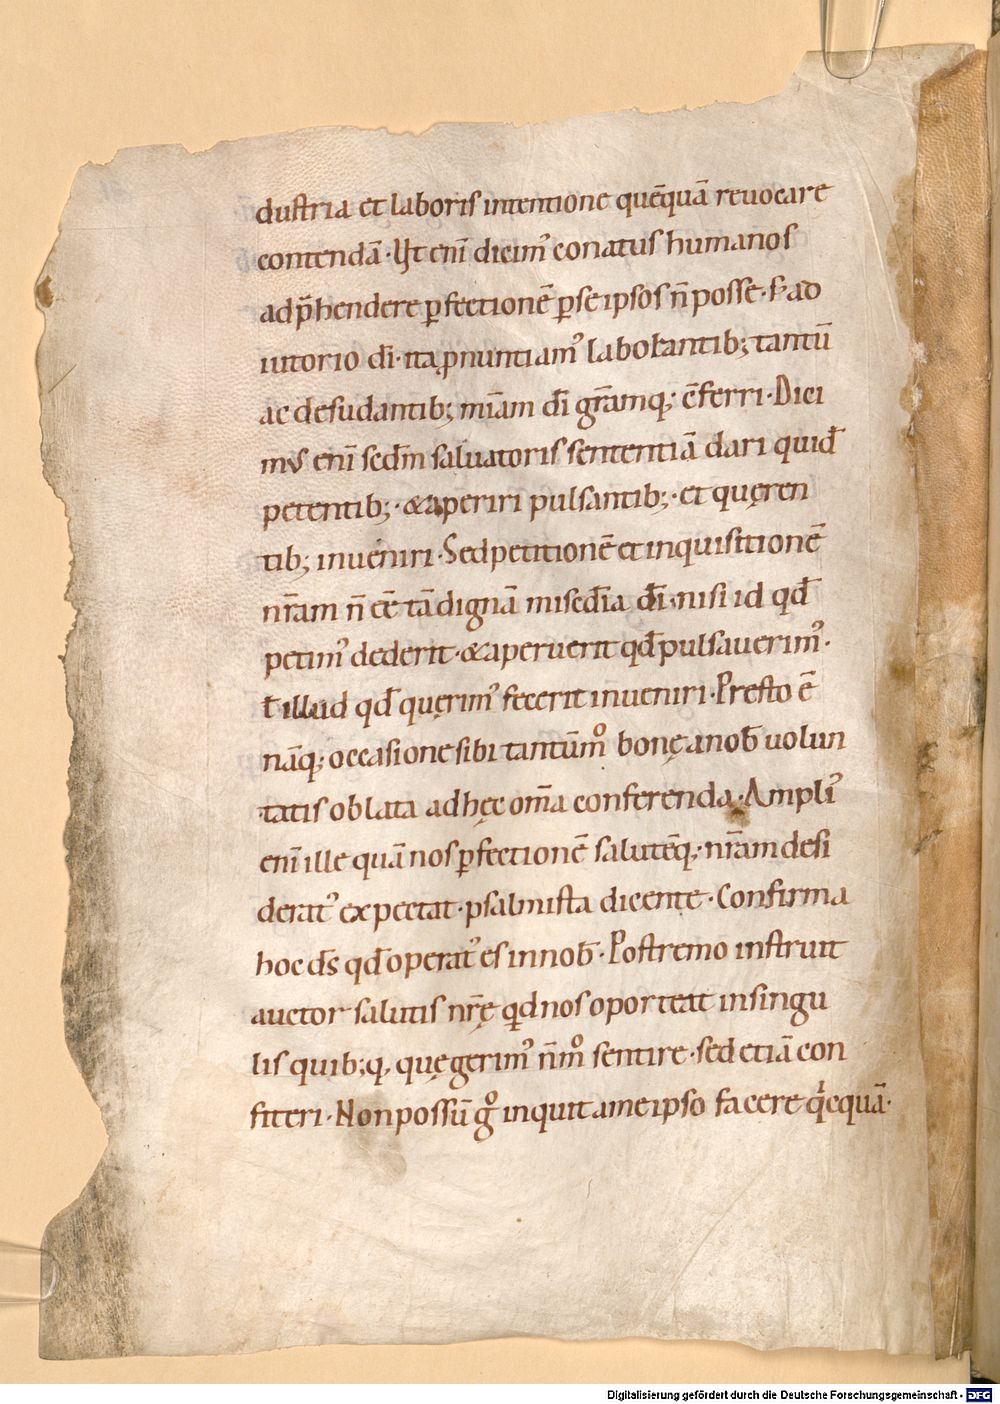 dustria et laboris intentione quēquā reuocare
contendā · Ut eni̅ dicim᾽ conatus humanos
adp̄hendere ꝑfectionē ꝑse ipsos n̄ posse · s; ad
iutorio dī · ita ꝓnuntiam᾽ laborantib; tantū
ac desudantib; mīam dī gr̄amq; c̄ferri · Dici
mus eni̅ secd̄m saluatoris sententiā dari quid̄
petentib; · & aperiri pulsantib; · et quęren
tib; inueniri · Sed petitionē et inquisitionē
nr̄am n̄ ēē tā dignā miscd̄ia dī · nisi id qd̄
petim᾽ dederit · & aperuerit qd̄ pulsauerim᾽ ·
ł illud qd̄ quęrim᾽ fecerit inueniri · Presto ē
nāq; occasione sibi tantūm° bonę a nob̄ uolun
tatis oblata ad hęc om̄a conferenda · Ampli᾽
eni̅ ille quā nos ꝑfectionē salutēq; · nr̄am desi
derat᾽ expectat · psalmista dicente · Confirma
hoc d̄s qd̄ operat᾽ es in nob̄ · Postremo instruit
auctor salutis nr̄ę qid nos oporteat in singu
lis quib;q, quę gerim᾽ n̄m° sentire · sed etiā con
fiteri · Non possū g° inquit a me ipso facere qicquā ·
Digitalisierung gefördert durch die Deutsche Forschungsgemeinschaft - DFG